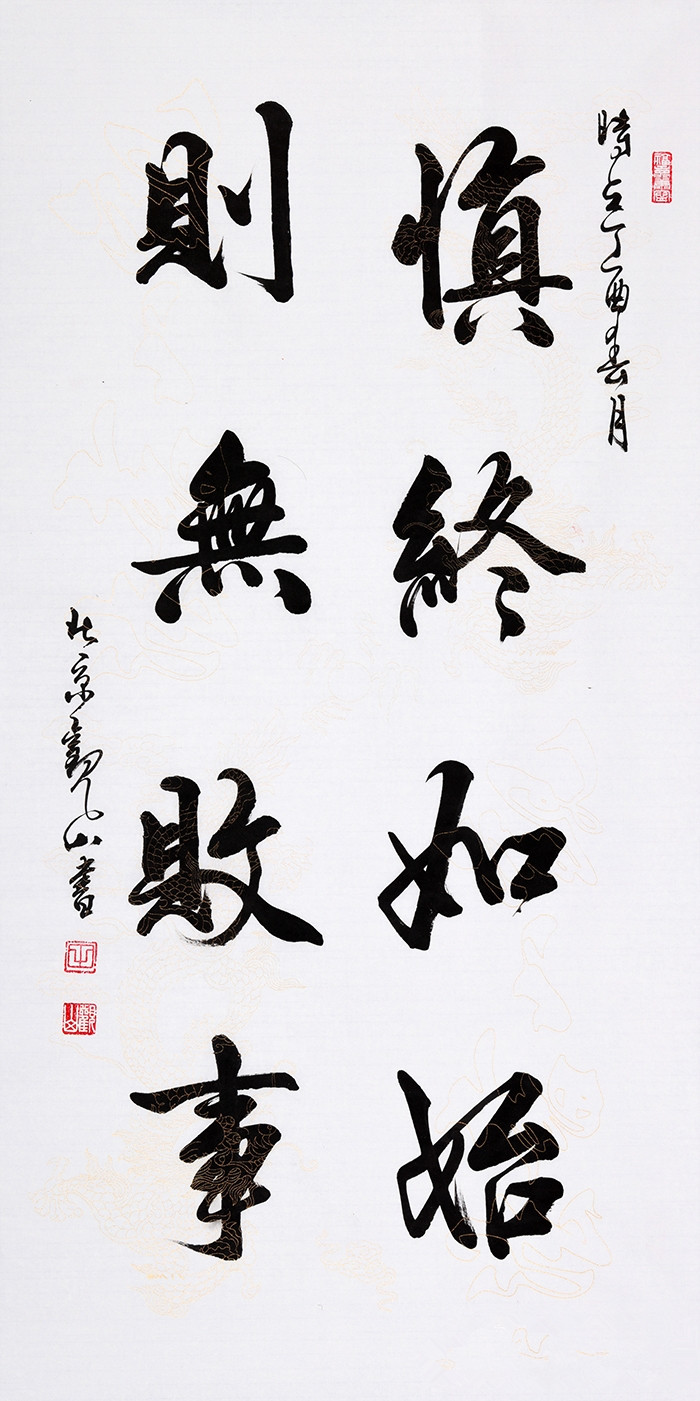 時在丁酉春月
慎終如始
則無敗事
北京觀山書